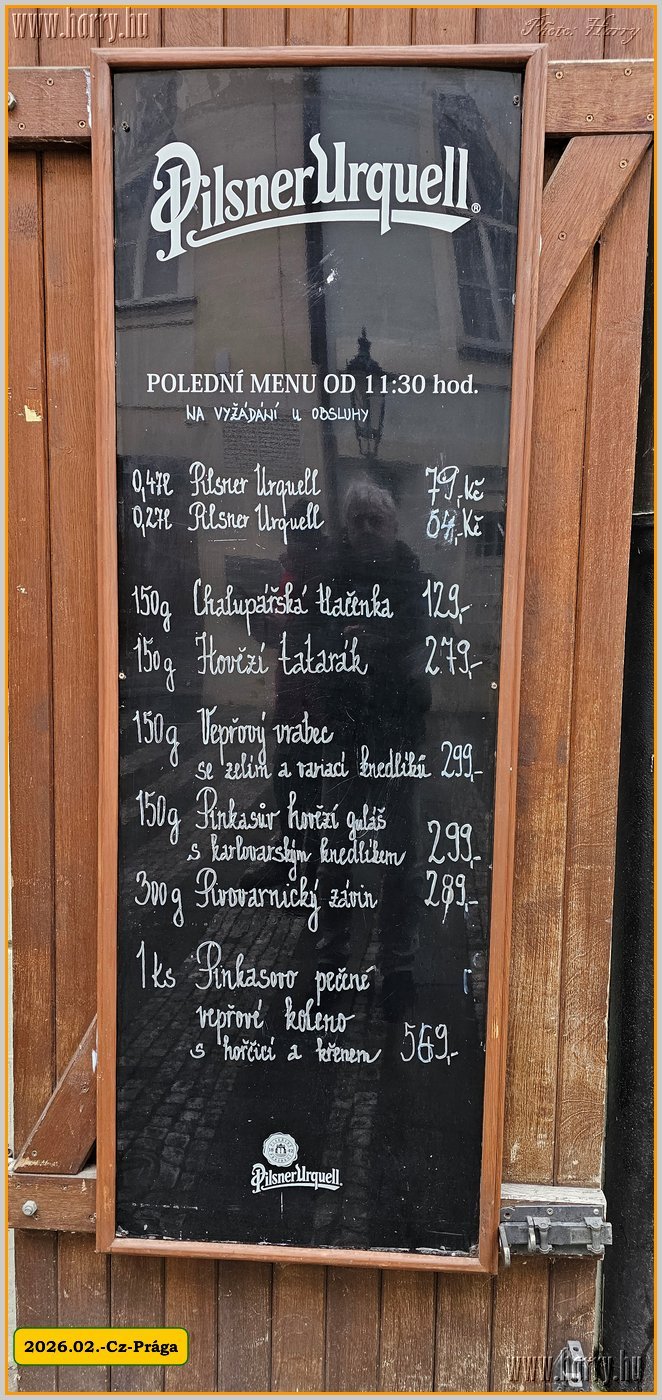 www.horry.hu
Photo: Horry
Pilsner Urquell®
POLEDNÍ MENU OD 11:30 hod.
NA VYŽÁDÁNÍ U OBSLUHY
0,47l Pilsner Urquell 79,-Kč
0,27l Pilsner Urquell 54,-Kč
150g Chalupářská tlačenka 129,-
150g Hovězí tatarák 279,-
150g Vepřový vrabec
se zelím a variací knedlíků 299,-
150g Pinkasův hovězí guláš
s karlovarským knedlíkem 299,-
300g Pivovarnický závin 289,-
1ks Pinkasovo pečené
vepřové koleno
s hořčicí a křenem 569,-
Pilsner Urquell
2026.02.-Cz-Prága
www.horry.hu